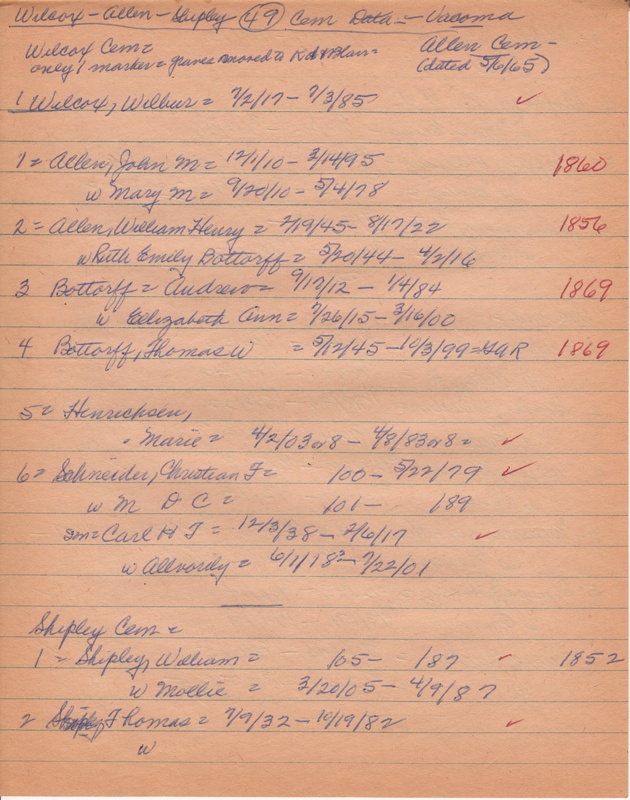 Wilcox - Allen - Shipley (49) Cem Data - Vacoma
Wilcox Cem = Allen Cem -
only 1 marker = graves moved to K d & Blair = (dated 5/6/65)
1 Wilcox, Wilbur = 7/2/17 - 7/3/85 ✓
1 = Allen, John M = 12/1/10 - 3/14/95 1860
w Mary M = 9/20/10 - 5/4/78
2 = Allen, William Henry = 2/19/45 - 8/17/22 1856
w Ruth Emily Bottorff = 5/20/44 - 4/2/16
3 Bottorff = Andrew = 9/17/12 - 1/4/84 1869
w Eelizabeth Ann = 7/26/15 - 3/16/00
4 Bottorff, Thomas W = 5/12/45 - 10/3/99 = GAR 1869
5 = Henrichsen,
= Marie = 4/2/03 or 8 - 4/8/83 or 8 = ✓
6 = Schneider, Christian F = 100 - 5/22/79 ✓
w M D C = 101 - 189
sm = Carl H F = 12/3/38 - 2/6/17 ✓
w Allvorily = 6/1/18 - 7/22/01
Shipley Cem =
1 = Shipley, William = 105 - 187 ✓ 1852
w Mollie = 3/20/05 - 4/9/87
2 Thomas = 7/9/32 - 10/19/82 ✓
w